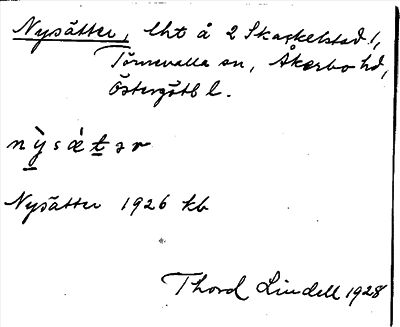 Nysätter, lht å 2 Skackelstad /,
Törnevalla sn, Åkerbo hd,
Östergötl l.
nỳsǽtər
Nysätter 1926 kb
Thord Lindell 1928